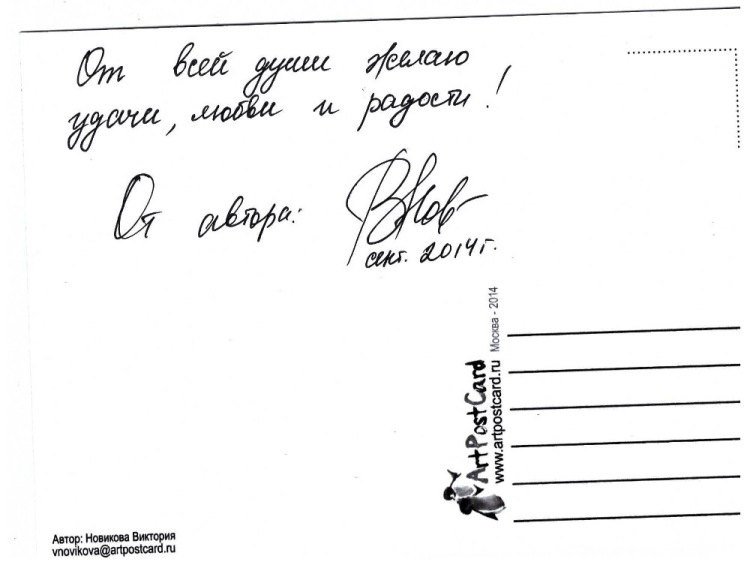 От всей души желаю
удачи, любви и радости!
От автора: ВНов
сент. 2014г.
ArtPostCard
www.artpostcard.ru Москва - 2014
Автор: Новикова Виктория
vnovikova@artpostcard.ru